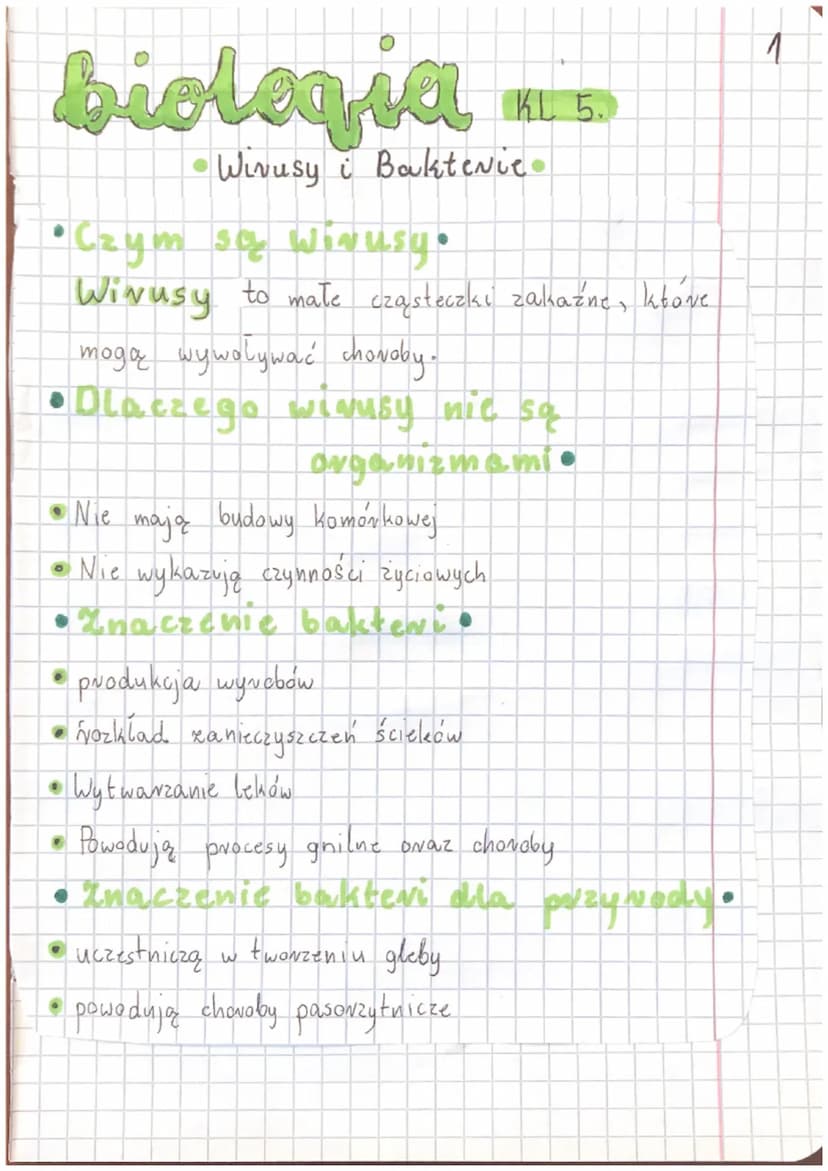 1
biologia KL 5.
• Wirusy i Bakterie •
• Czym są wirusy •
Wirusy to małe cząsteczki zakaźne, które
mogą wywoływać choroby.
• Dlaczego wirusy nie są
organizmami •
• Nie mają budowy komórkowej
• Nie wykazują czynności życiowych
• Znaczenie bakteri •
• produkcja wyrobów
• rozkład zanieczyszczeń ścieków
• Wytwarzanie leków
• Powodują procesy gnilne oraz choroby
• Znaczenie bakteri dla przyrody •
• uczestniczą w tworzeniu gleby
• powodują choroby pasorzytnicze